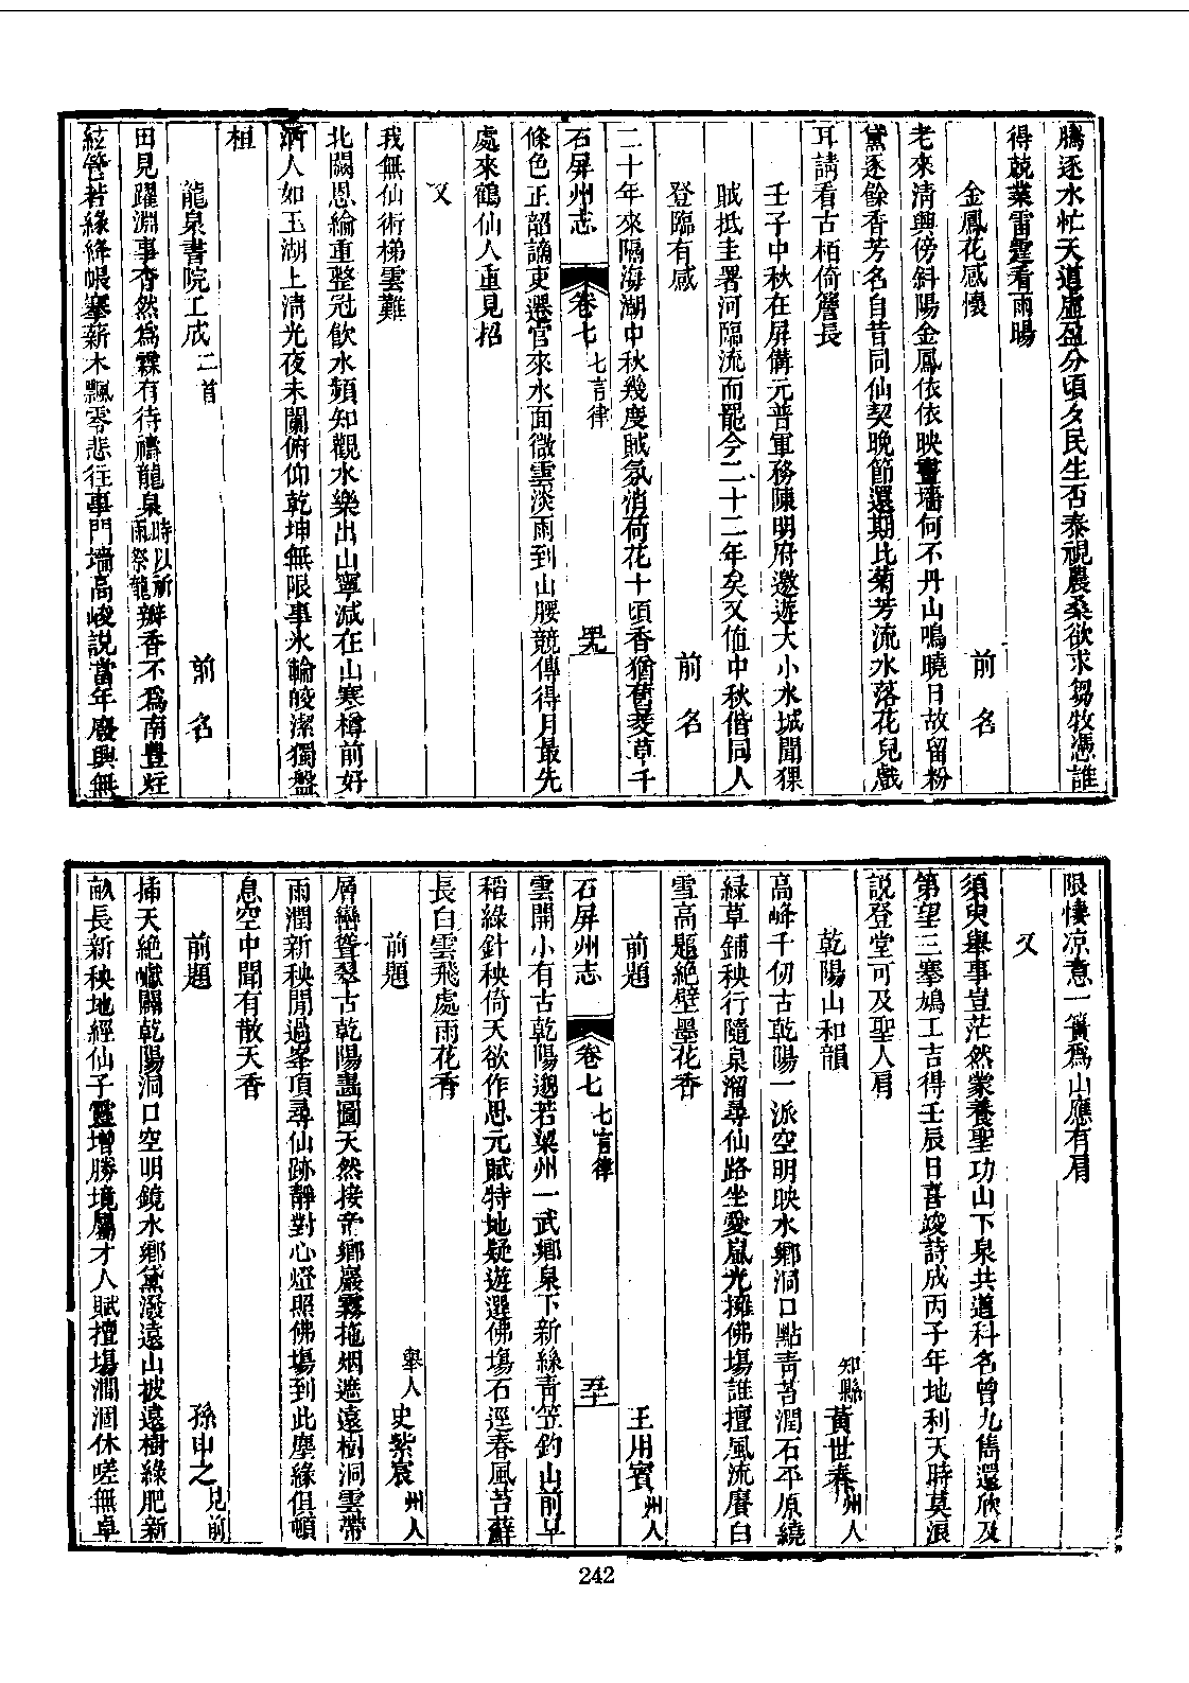 騰逐水忙天道虛盈分頃久民生否泰視農桑欲求芻牧憑誰
得兢業雷霆看雨暘
金鳳花感懷　前名
老來清興傍斜陽金鳳依依映畫墻何不丹山鳴曉日故留粉
黛逐餘香芳名自昔同仙契晚節還期比菊芳流水落花兒戲
耳請看古栢倚簷長
壬子中秋在屏備元普軍務陳明府邀遊大小水城聞猓
賊抵圭署河臨流而罷今二十二年矣又值中秋偕同人
登臨有感　前名
二十年來隔海湖中秋幾度賊氛消荷花十頃香猶舊菱草千
石屏州志　卷七　七言律　罕九
條色正韶謫吏還官來水面微雲淡雨到山腰競傳得月最先
處來鶴仙人重見招
又
我無仙術梯雲難
北闕恩綸重整冠飲水頻知觀水樂出山寧減在山寒樽前好
酒人如玉湖上清光夜未闌俯仰乾坤無限事氷輪皎潔獨盤
桓
龍泉書院工成二首　前名
田見躍淵事杳然爲霖有待禱龍泉時以祈雨祭龍瓣香不爲南豐炷
絃管若緣絳帳搴薪木飄零悲往事門墻高峻説當年廢興無
限悽凉意一簣爲山應有肩
又
須臾舉事豈茫然蒙養聖功山下泉共道科名曾九雋還欣及
第望三搴鳩工吉得壬辰日喜竣詩成丙子年地利天時莫浪
説登堂可及聖人肩
乾陽山和韻　知縣黃世泰州人
高峰千仞古乾陽一派空明映水鄉洞口點靑苔潤石平原繞
綠草鋪秧行隨泉溜尋仙路坐愛嵐光擁佛塲誰擅風流賡白
雪高題絶壁墨花香
前題　王用賓州人
雲開小有古乾陽邈若梁州一武鄉泉下新絲靑笠釣山前早
石屏州志　卷七　七言律　五十
稻綠針秧倚天欲作思元賦特地疑遊選佛塲石逕春風苔蘚
長白雲飛處雨花香
前題　舉人史紫宸州人
層巒聳翠古乾陽畵圖天然接帝鄉巖霧拖烟遮遠樹洞雲帶
雨潤新秧閒過峯頂尋仙跡靜對心燈照佛塲到此塵緣俱頓
息空中聞有散天香
前題　孫申之見前
插天絶巘闢乾陽洞口空明鏡水鄉黛潑遠山披遠樹綠肥新
畝長新秧地經仙子靈增勝境屬才人賦擅塲澗涸休嗟無卓
242